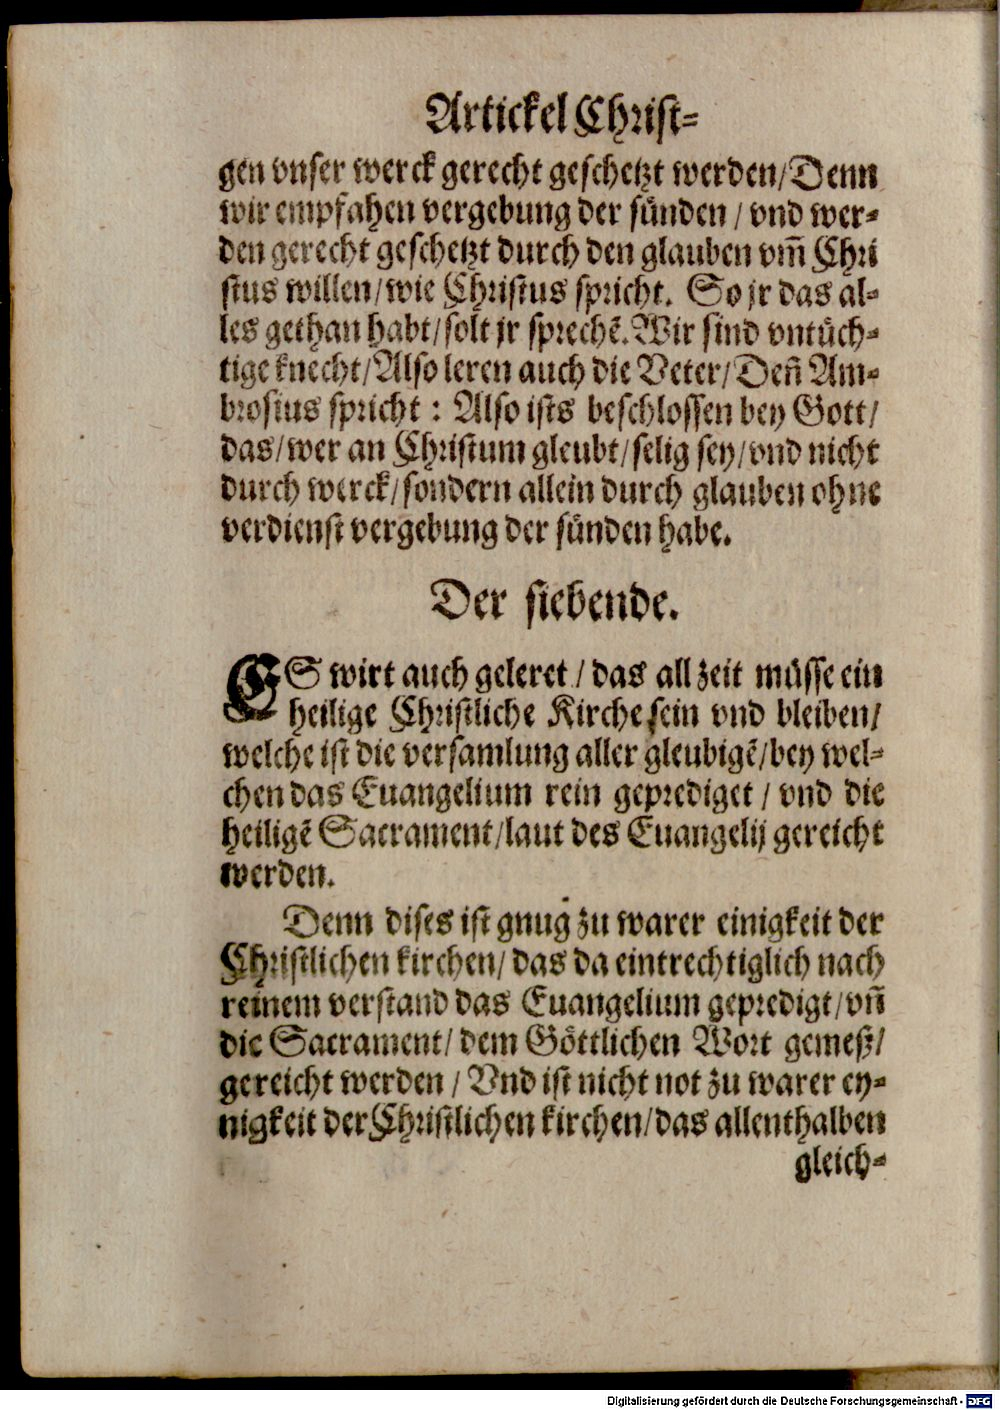 Artickel Christ=
gen vnser werck gerecht geschetzt werden/Denn
wir empfahen vergebung der sünden / vnd wer=
den gerecht geschetzt durch den glauben vm̄ Chri
stus willen/wie Christus spricht. So jr das al=
les gethan habt/solt jr sprechē. Wir sind vntüch=
tige knecht/Also leren auch die Veter/Deñ Am=
brosius spricht : Also ists beschlossen bey Gott/
das/wer an Christum gleubt/selig sey/vnd nicht
durch werck/sondern allein durch glauben ohne
verdienst vergebung der sünden habe.
Der siebende.
ES wirt auch geleret / das all zeit müsse ein
heilige Christliche Kirche sein vnd bleiben/
welche ist die versamlung aller gleubigē/bey wel=
chen das Euangelium rein geprediget / vnd die
heiligē Sacrament/laut des Euangelij gereicht
werden.
Denn dises ist gnug zu warer einigkeit der
Christlichen kirchen/das da eintrechtiglich nach
reinem verstand das Euangelium gepredigt/vñ
die Sacrament/ dem Göttlichen Wort gemeß/
gereicht werden / Vnd ist nicht not zu warer ey=
nigkeit der Christlichen kirchen/das allenthalben
gleich=
Digitalisierung gefördert durch die Deutsche Forschungsgemeinschaft - DFG